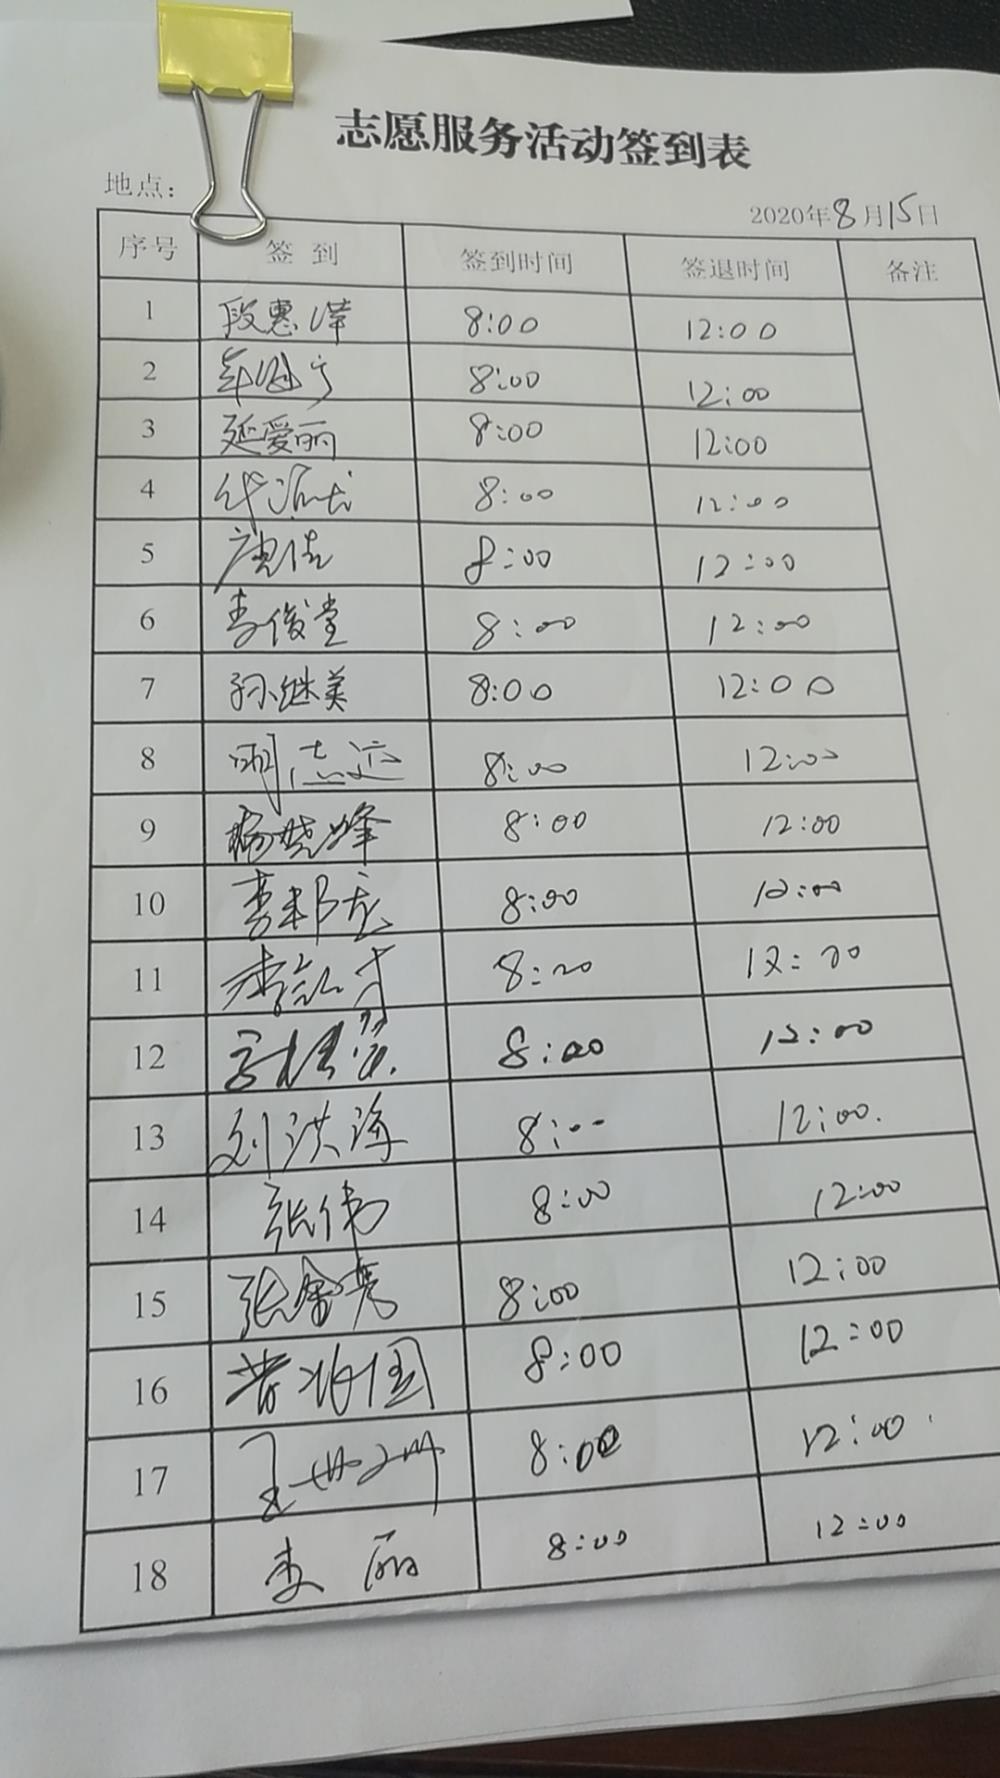 志愿服务活动签到表
地点：
2020年8月15日
序号 签到 签到时间 签退时间 备注
1 段惠泽 8:00 12:00
2 8:00 12:00
3 延爱丽 8:00 12:00
4 8:00 12:00
5 8:00 12:00
6 李俊堂 8:00 12:00
7 孙继美 8:00 12:00
8 8:00 12:00
9 杨晓峰 8:00 12:00
10 8:00 12:00
11 8:00 12:00
12 8:00 12:00
13 刘洪海 8:00 12:00.
14 张伟 8:00 12:00
15 8:00 12:00
16 8:00 12:00
17 8:00 12:00
18 李丽 8:00 12:00